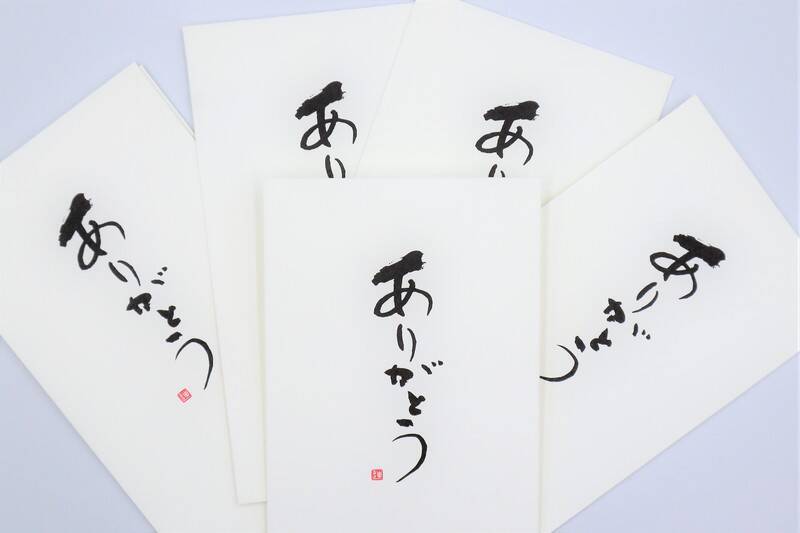 ありがとう
あり
あり
ありがとう
ありがとう